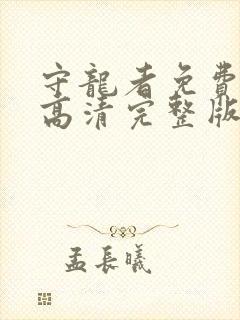 守龍者免費
高清完整版
孟長曦